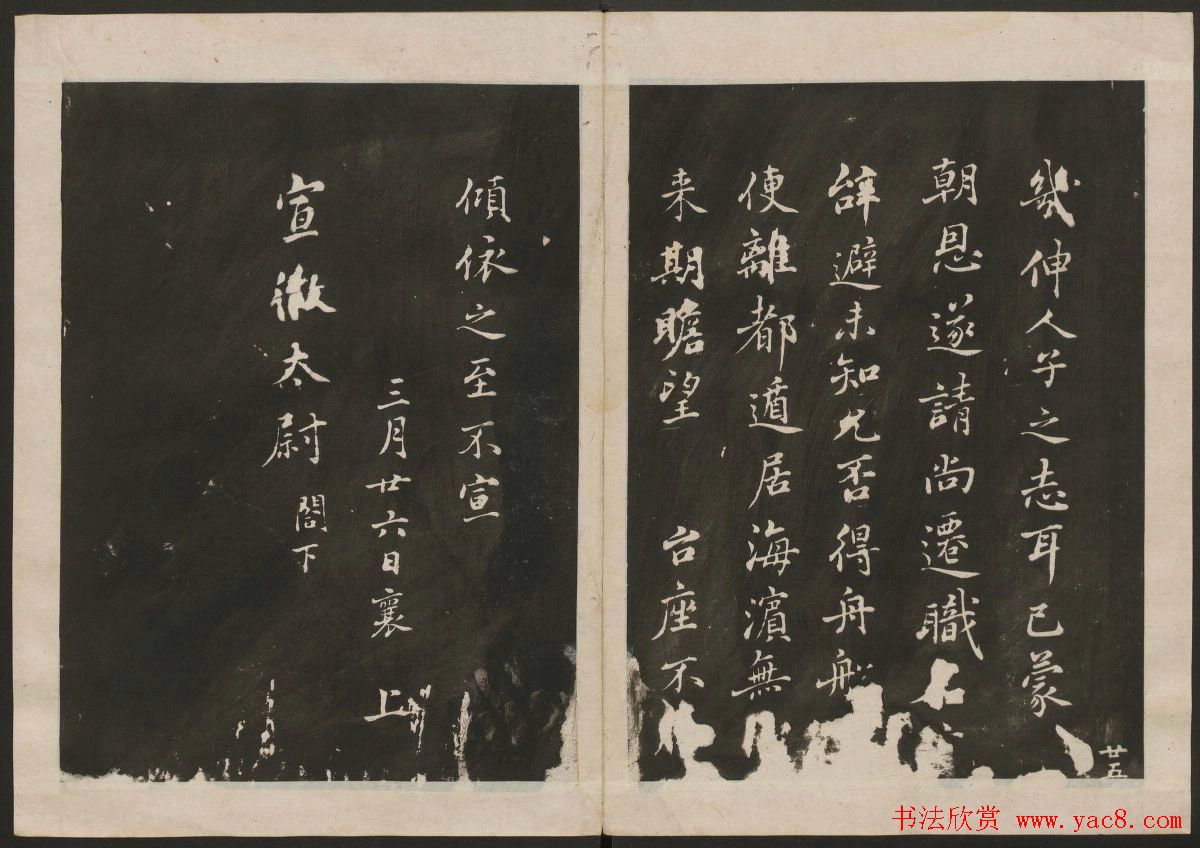 幾伸人子之志耳已蒙
朝恩遂請尚遷職名
辞避未知允否得舟船
便離都遁居海濱無
来期瞻望 台座不
廿五
傾依之至不宣
三月廿六日襄 上
宣徽太尉 閣下
书法欣赏 www.yac8.com